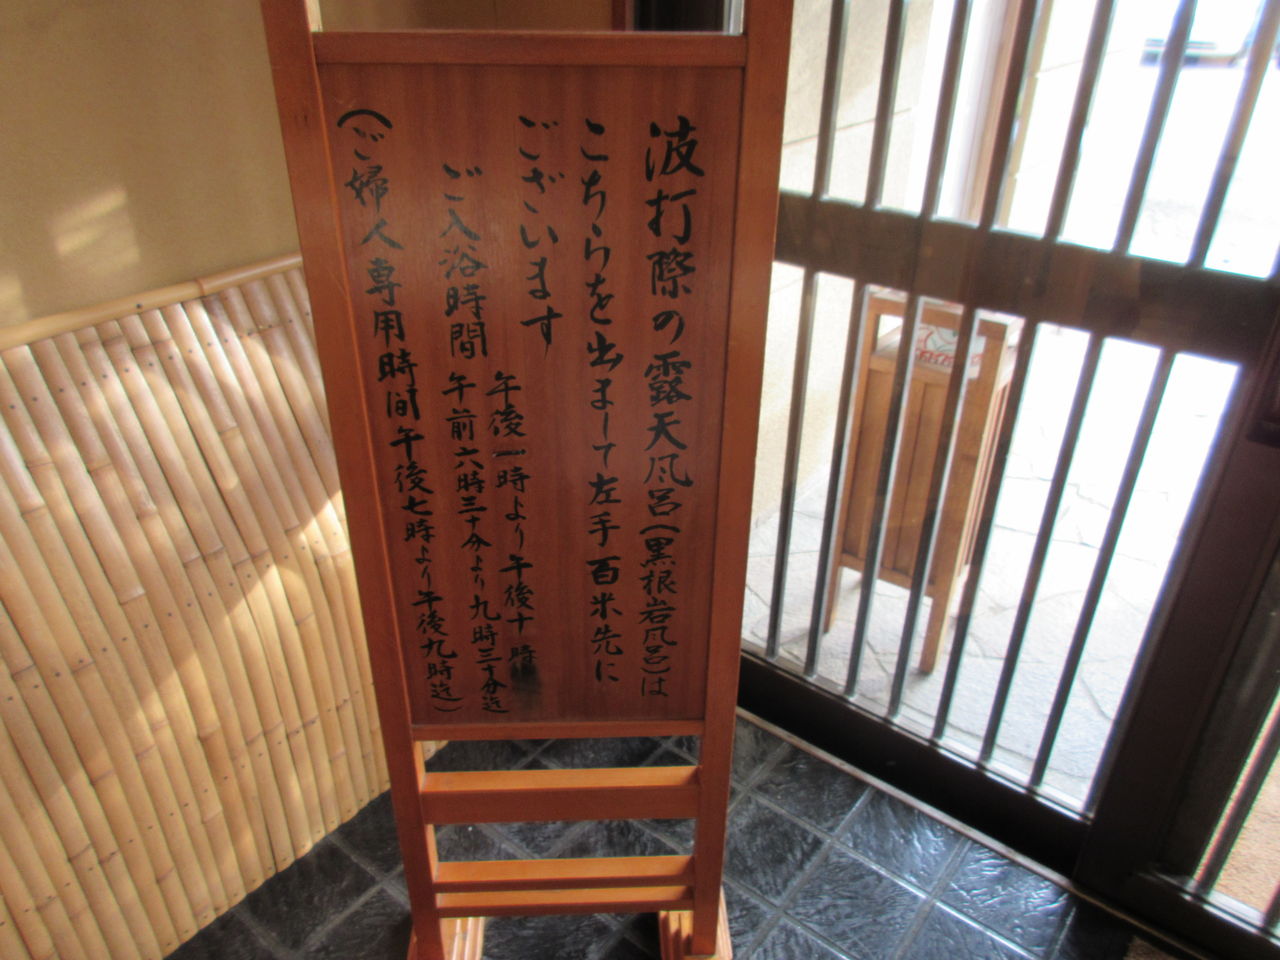 波打際の露天風呂(黒根岩風呂)は
こちらを出まして左手百米先に
ございます
ご入浴時間
午後一時より午後十時
午前六時三十分より九時三十分迄
(ご婦人専用時間午後七時より午後九時迄)